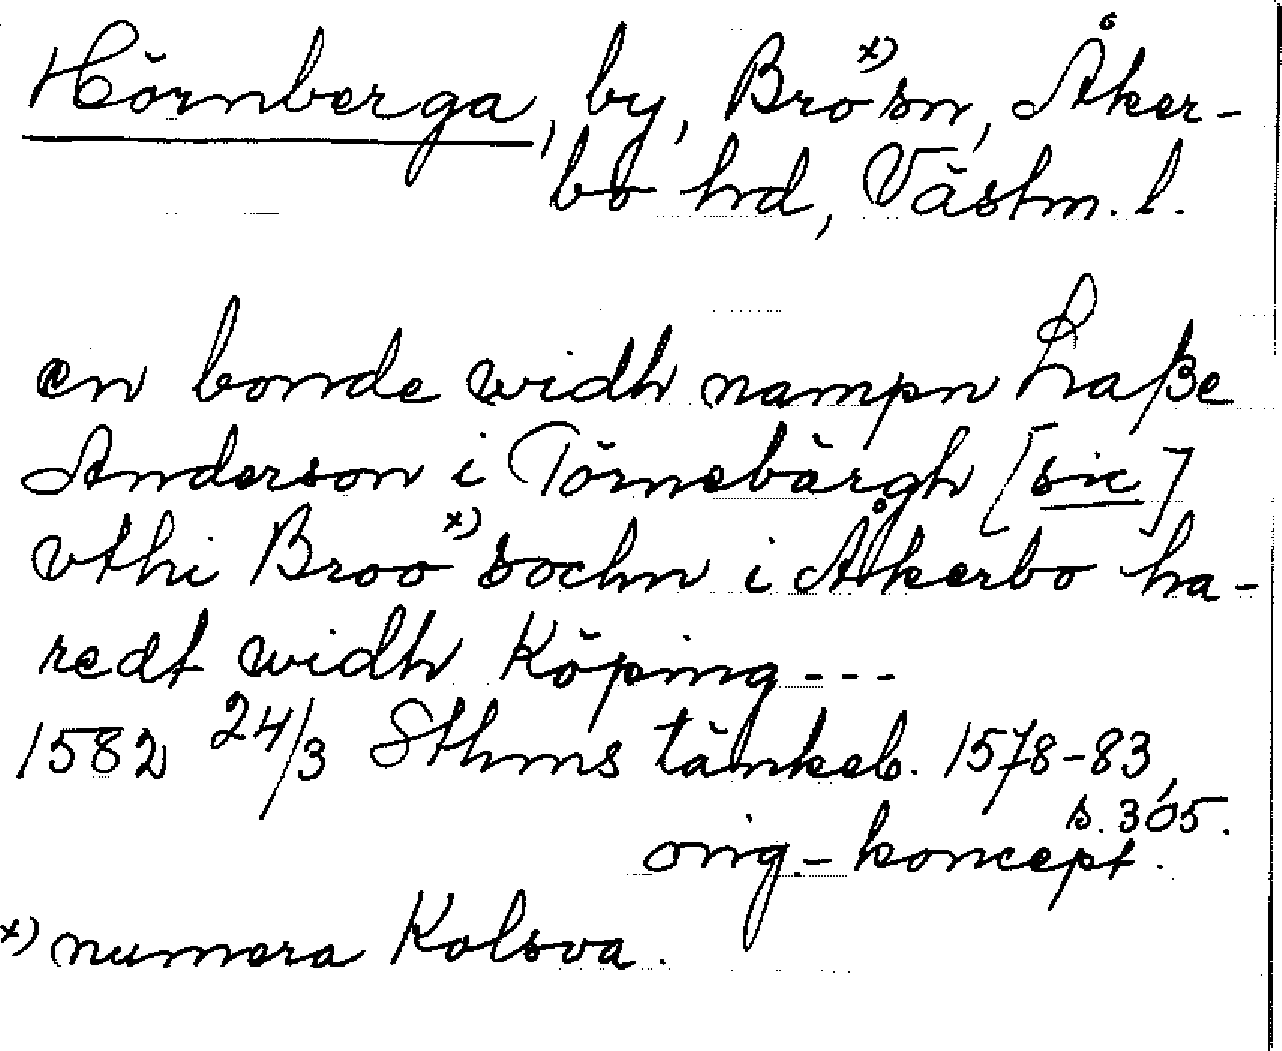 Hörnberga, by, Bro x) sn, Åker-
bo hrd, Västm. l.
en bonde widh nampn Laße
Anderson i Törnebärgh [sic]
vthi Broo x) sochn i Åkerbo hä-
redt widh Köping ---
1582 24/3 Sthms tänkeb. 1578-83,
s. 305.
orig.-koncept.
x) numera Kolsva.